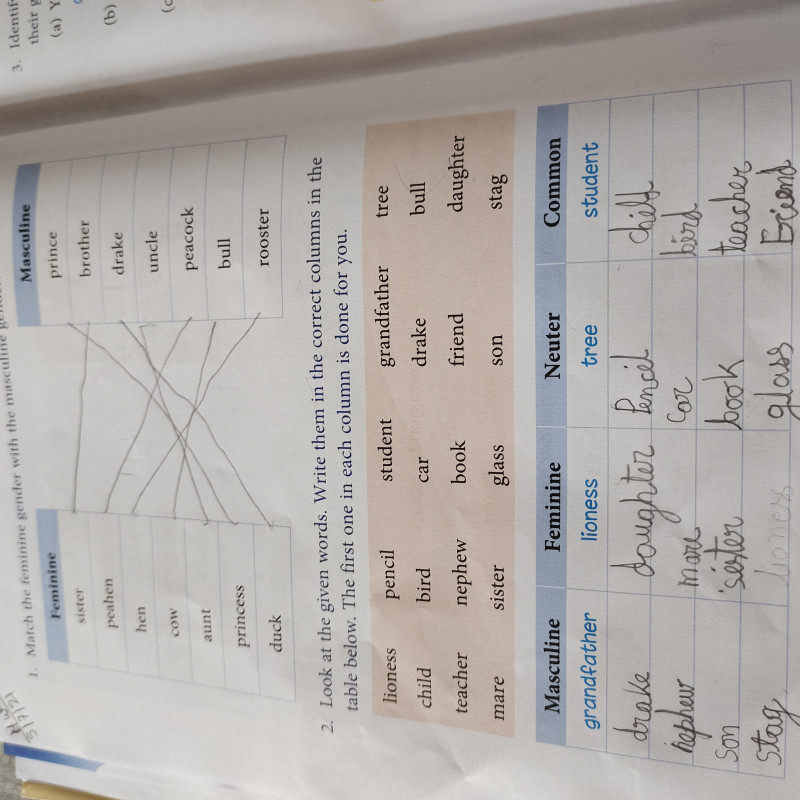 1. Match the feminine gender with the masculine
Feminine Masculine
sister prince
peahen brother
hen drake
cow uncle
aunt peacock
princess bull
duck rooster
2. Look at the given words. Write them in the correct columns in the
table below. The first one in each column is done for you.
lioness pencil student grandfather tree
child bird car drake bull
teacher nephew book friend daughter
mare sister glass son stag
Masculine Feminine Neuter Common
grandfather lioness tree student
drake daughter Pencil child
nephew mare car bird
son sister book teacher
stag lioness glass Friend
3. Identify
their
(a)
(b)